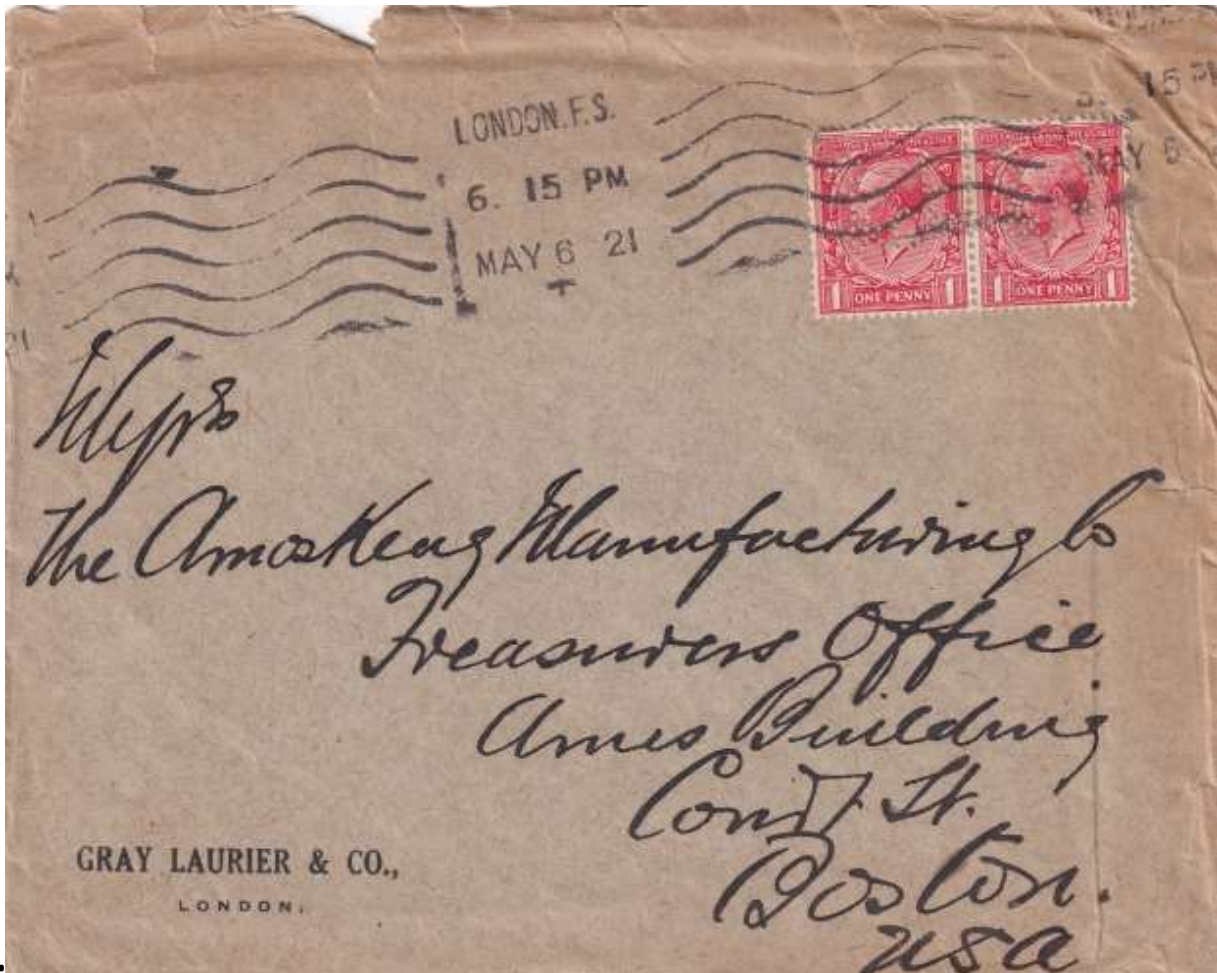 LONDON.F.S.
6. 15 PM
MAY 6 21
T
15 PM
MAY 6
1 ONE PENNY 1
1 ONE PENNY 1
Messrs
The Amoskeag Manufacturing Co
Treasurers Office
Ames Building
Court St.
Boston.
USA
GRAY LAURIER & CO.,
LONDON.